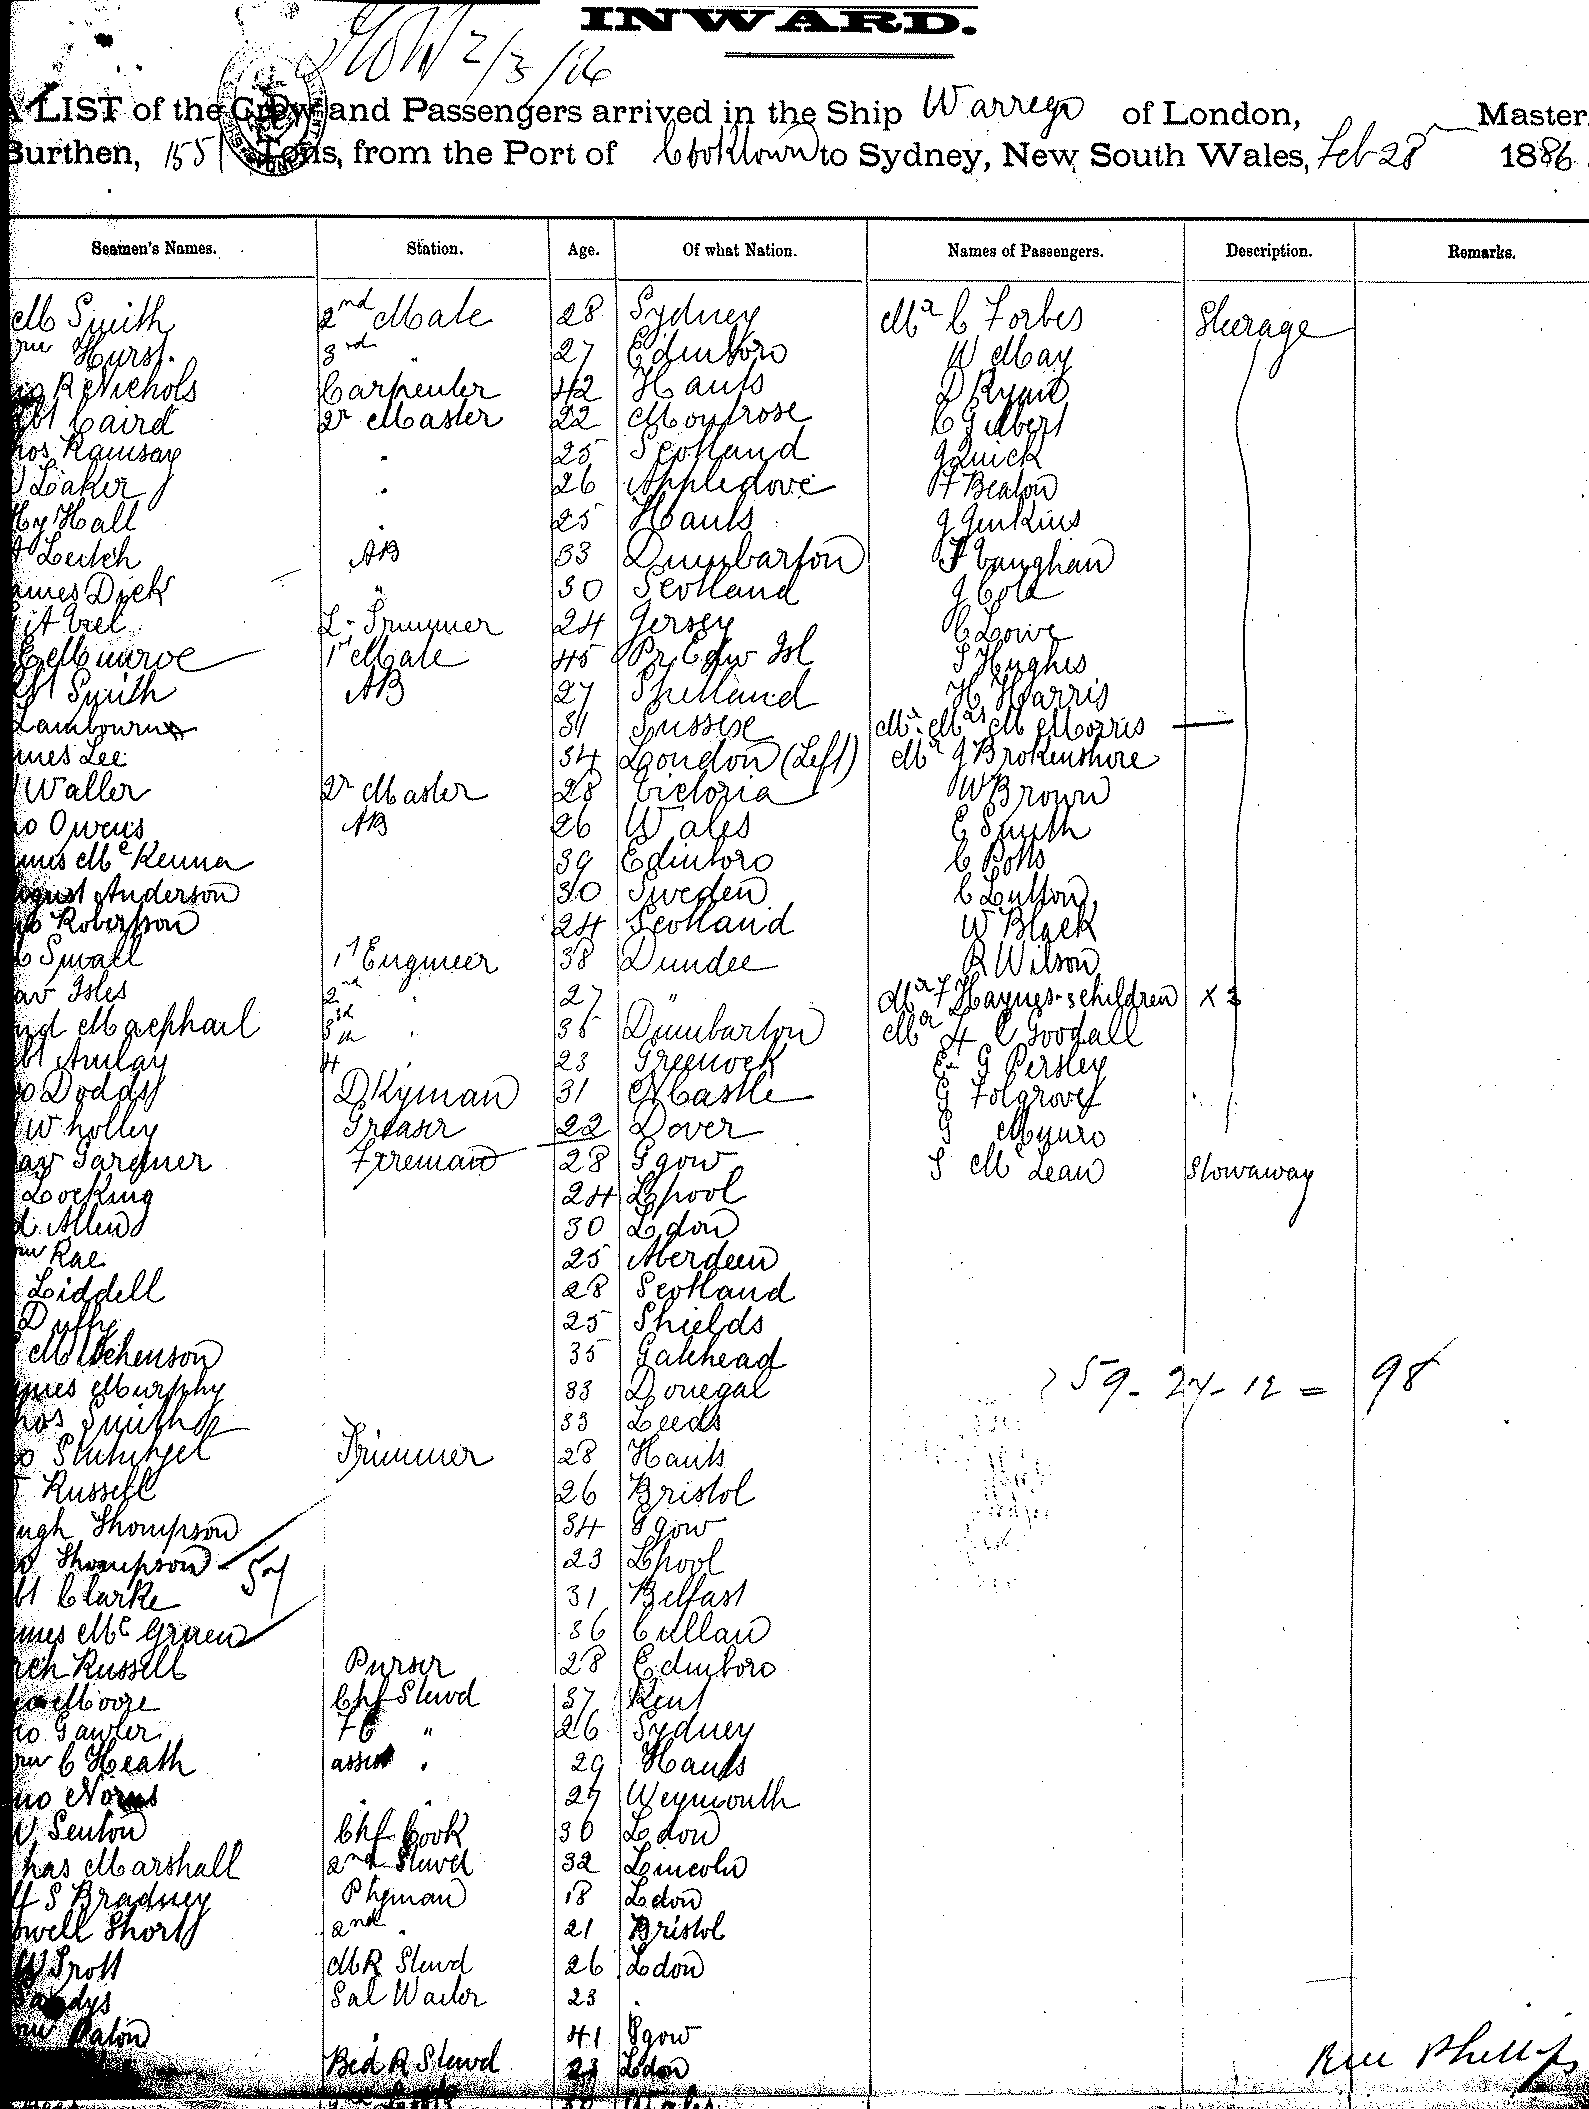 INWARD.
2/3/86
A LIST of the Crew and Passengers arrived in the Ship Warrego of London, Master,
Burthen, 1551 Tons, from the Port of Cooktown to Sydney, New South Wales, Feb 28 1886.
Seamen's Names. Station. Age. Of what Nation. Names of Passengers. Description. Remarks.
M Smith 2nd Mate 28 Sydney Mr C Forbes Steerage
Hurst. 3rd " 27 Edinboro W May
R Nichols Carpenter 42 Hants D Ryan
Caird Qr Master 22 Montrose C Gilbert
Ramsay " 25 Scotland J Quick
Laker " 26 Appledore F Beaton
Hy Hall " 25 Hants J Jenkins
Leitch AB 33 Dumbarton F Vaughan
James Dick " 30 Scotland J Cole
L-Trimmer 24 Jersey C Lowe
Munroe 1st Mate 45 Pr Edw Isl S Hughes
Smith AB 27 Shetland H Harris
Lambourne 31 Sussex Mr. Mrs M Morris
Lee 34 London (Left) Mr J Brokenshire
Waller Qr Master 28 Victoria W Brown
Owens AB 26 Wales E Smith
McKenna 39 Edinboro C Potts
August Anderson 30 Sweden C Lutton
Robertson 24 Scotland W Black
Small 1st Engineer 38 Dundee R Wilson
Isles 2nd " 27 " Mr F Haynes - 3 children x 3
Macphail 3rd " 35 Dumbarton Mr H C Goodall
Aulay 4th " 23 Greenock E G Persley
Dodds DKyman 31 NCastle G Folgrove
Wholley Greaser 22 Dover G Munro
Gardner Fireman 28 Ggow S McLean Stowaway
Locking 24 Lpool
Allen 30 Ldon
Rae 25 Aberdeen
Liddell 28 Scotland
Duffy 25 Shields
35 Gateshead
James Murphy 33 Donegal 59 - 27 - 12 = 98
Smith 33 Leeds
Trimmer 28 Hants
Russell 26 Bristol
Hugh Thompson 34 Ggow
Thompson 23 Lpool
57
Clarke 31 Belfast
James McGruen 36 Cullan
Russell Purser 28 Edinboro
Moore Chf Stewd 37 Kent
Gawler FC " 26 Sydney
C Heath assist " 29 Hants
Norris " " 27 Weymouth
Senton Chf Cook 30 Ldon
Chas Marshall 2nd Stewd 32 Lincoln
S Bradney Ptyman 18 Ldon
Short 2nd " 21 Bristol
Trott MR Stewd 26 Ldon
Sal Waiter 23 "
Paton " 41 Ggow
Bed R Stewd 23 Ldon
Wales